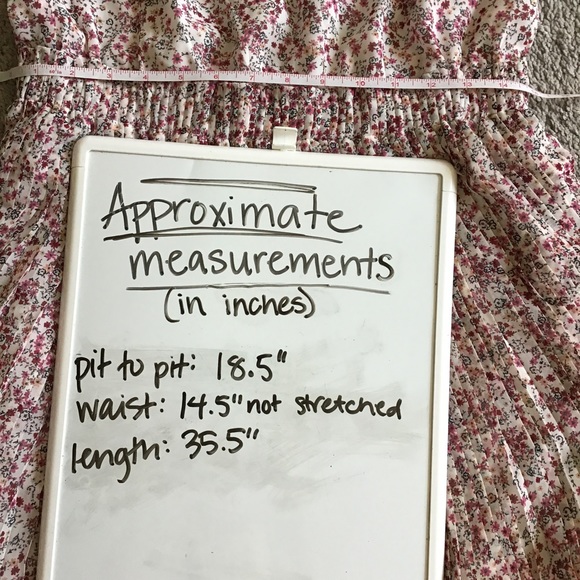 Approximate
measurements
(in inches)
pit to pit: 18.5"
waist: 14.5" not stretched
length: 35.5"